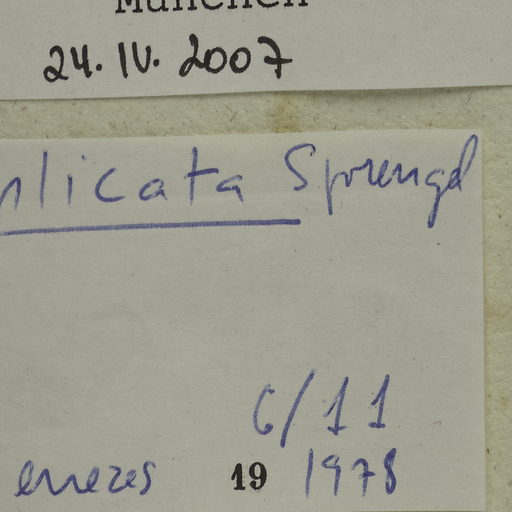 München
24.IV.2007
plicata Sprengel
6/11
19 1978